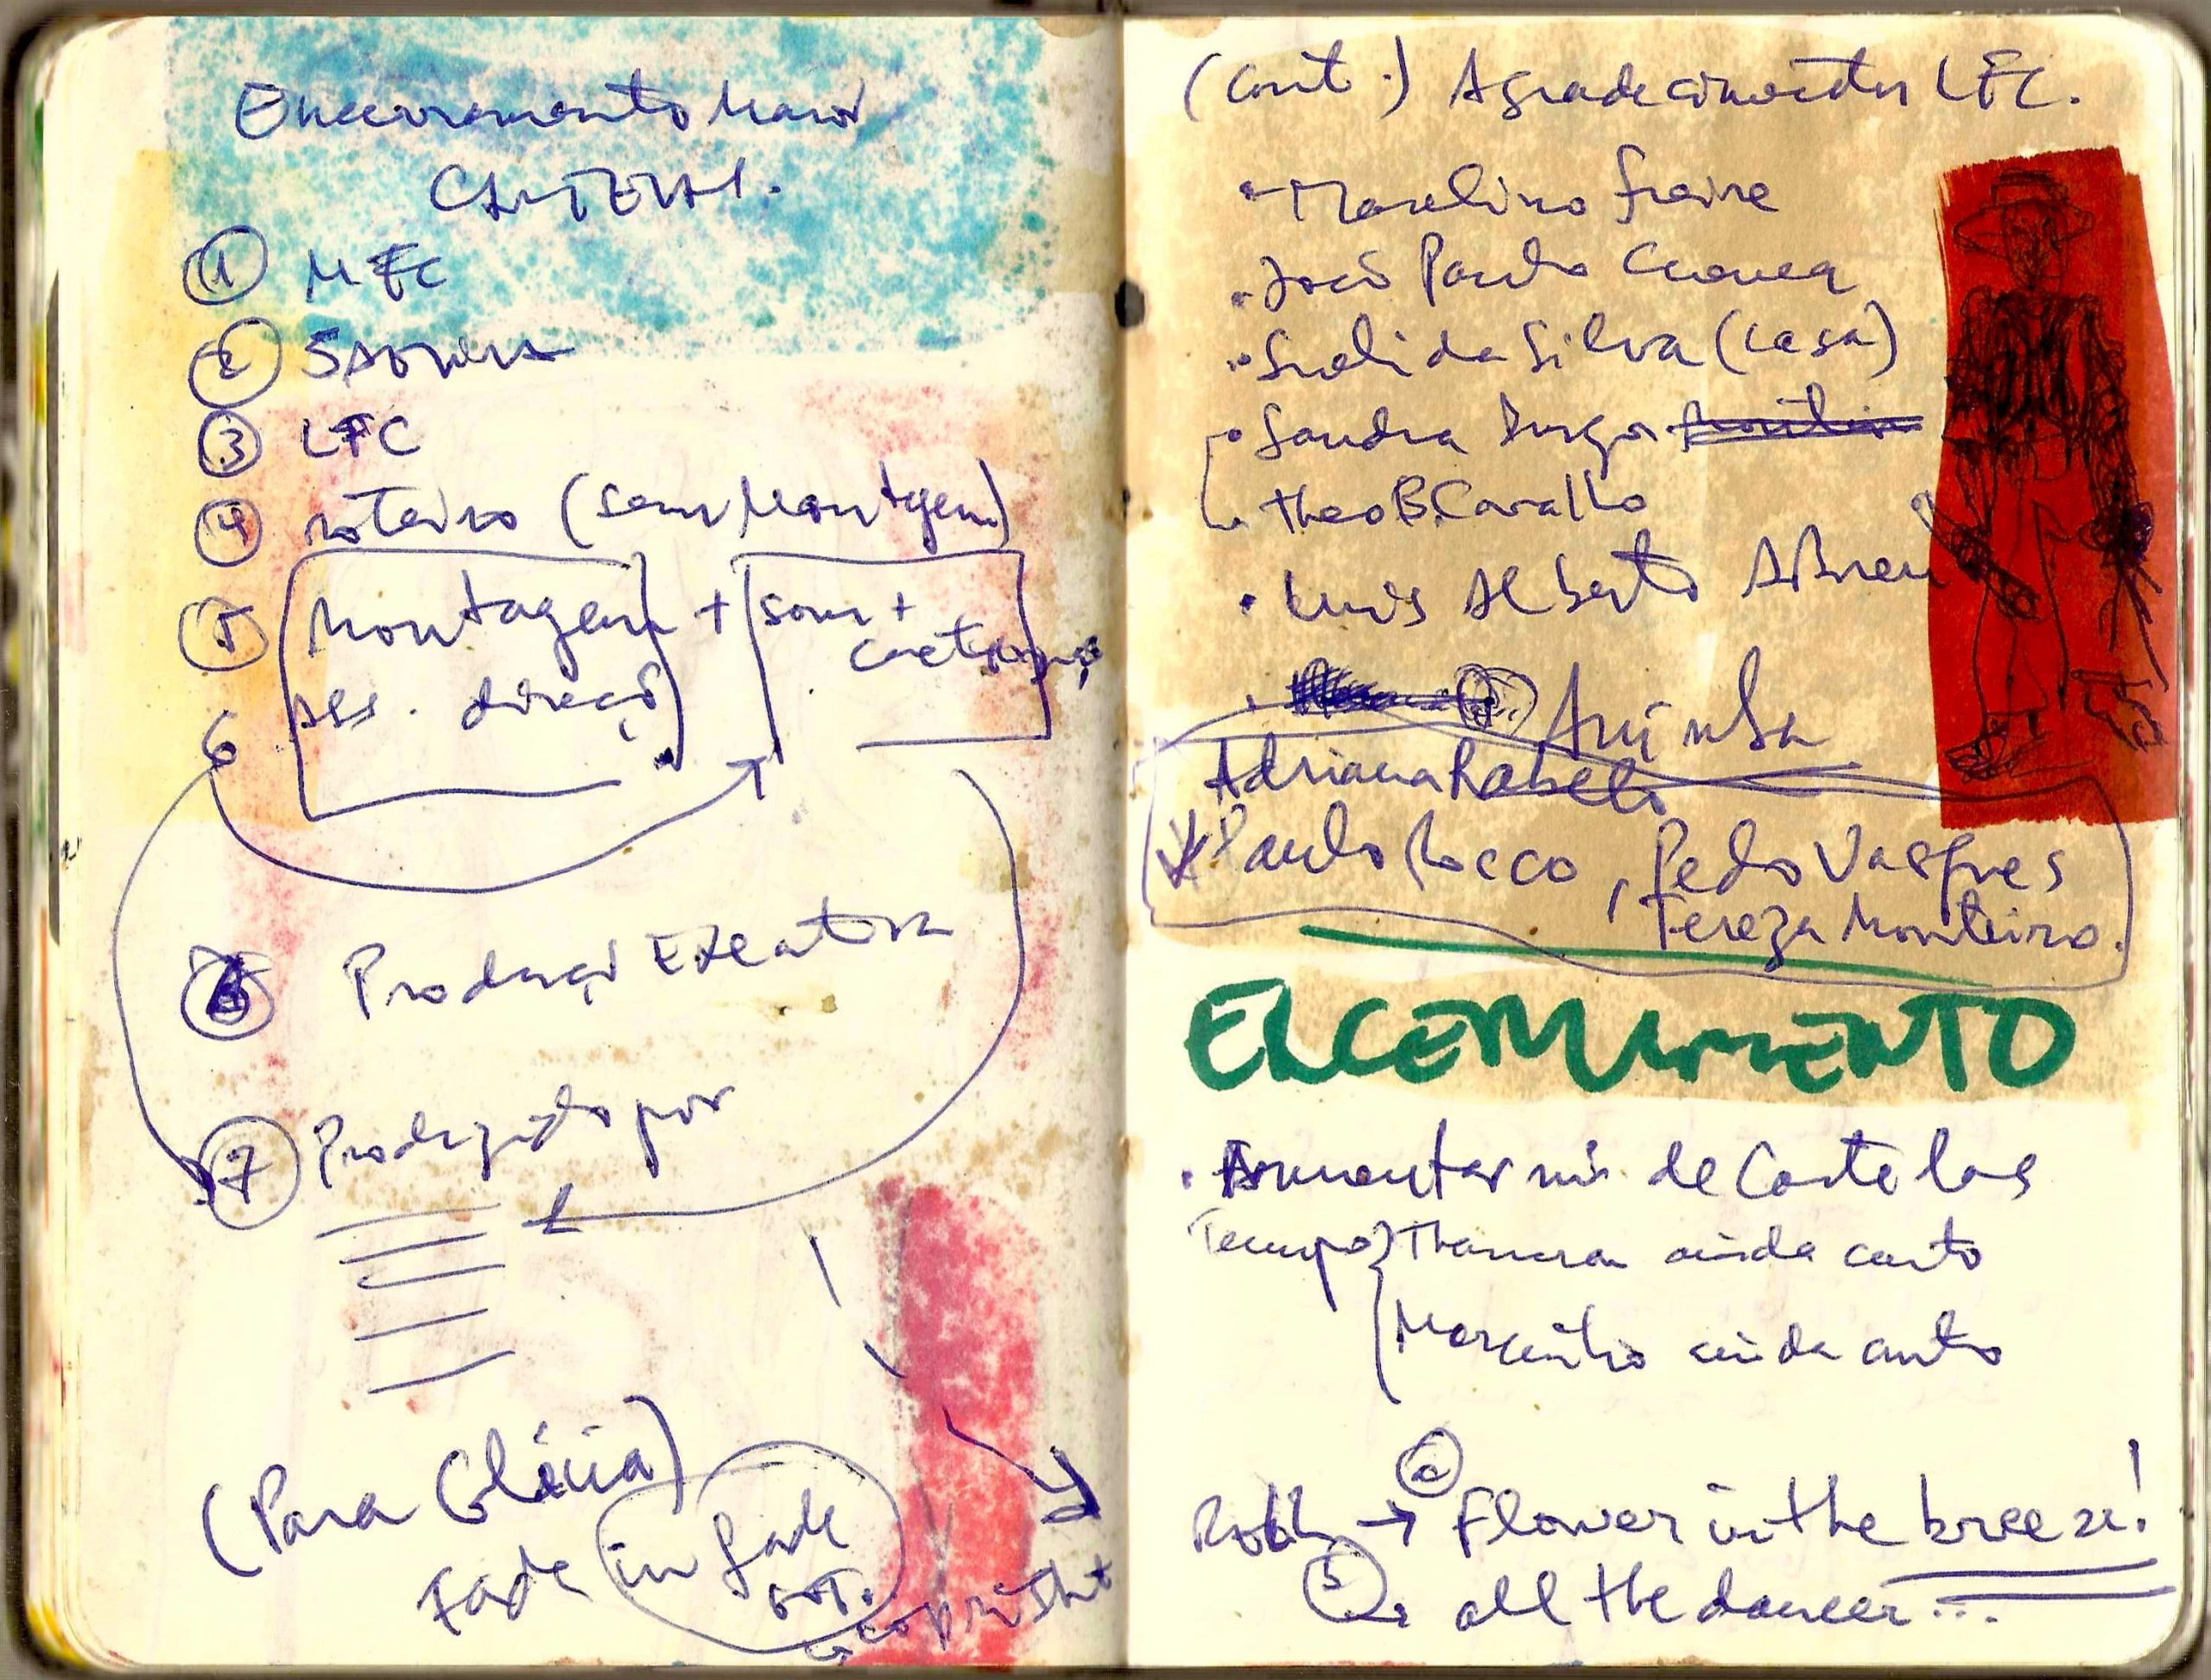 Encerramento
① MFC
②
③ LFC
④ roteiro (sem Montagem)
⑤ Montagem + som +
Ass. direção
6
Produção Executiva
⑦ Produzido por
(Para Glácia)
Fade in fade
out.
copyright
(Cont.) Agradecimentos LFC.
• Marcelino Freire
• João Paulo Cuenca
• Sueli da Silva (casa)
• Sandra
• Theo B. Carvalho
• Luis Alberto Abreu
• Aninha
Adriana Rabelo
Paulo Rocco, Pedro Vasques
Tereza Monteiro.
ENCERRAMENTO
• Aumentar nú. de Cartelas
Tempo } ainda curto
ainda curto
→ ⓐ Flower in the breeze!
ⓑ all the dancer...